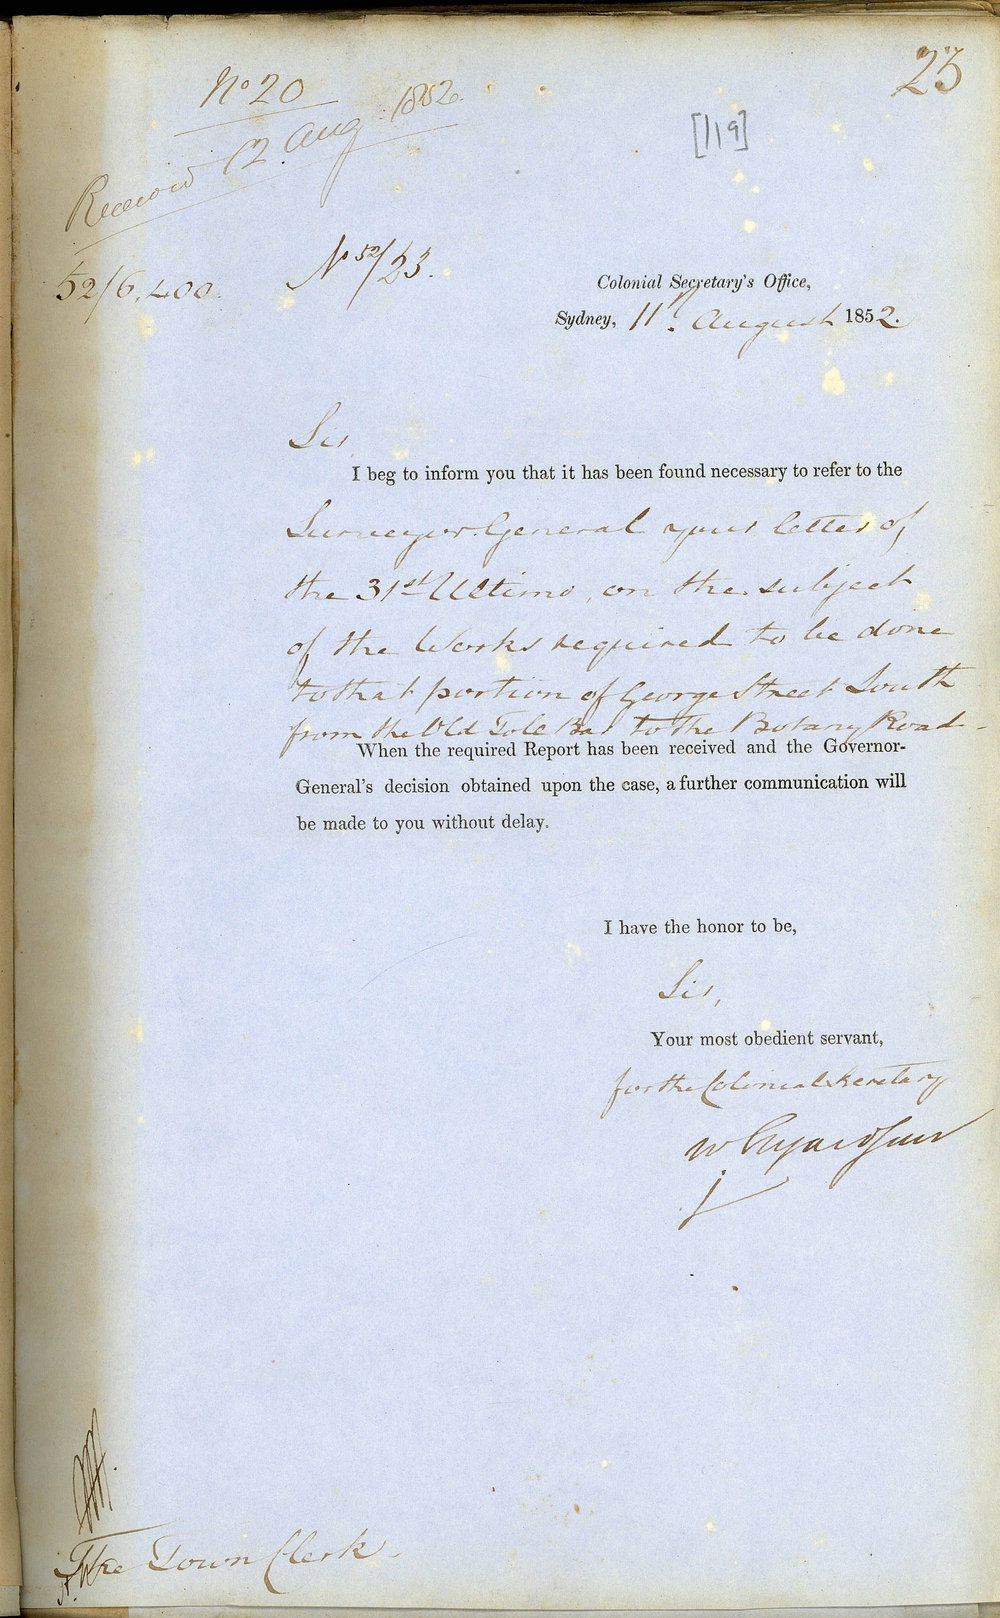 23
No 20
Received 12 Aug. 1852.
[119]
52/6,400.
No 52/23.
Colonial Secretary's Office,
Sydney, 11th August 1852.
Sir,
I beg to inform you that it has been found necessary to refer to the
Surveyor General your letter of
the 31st Ultimo, on the subject
of the Works required to be done
to that portion of George Street South
from the Old Toll Bar to the Botany Road -
When the required Report has been received and the Governor-
General's decision obtained upon the case, a further communication will
be made to you without delay.
I have the honor to be,
Sir,
Your most obedient servant,
for the Colonial Secretary
W
The Town Clerk